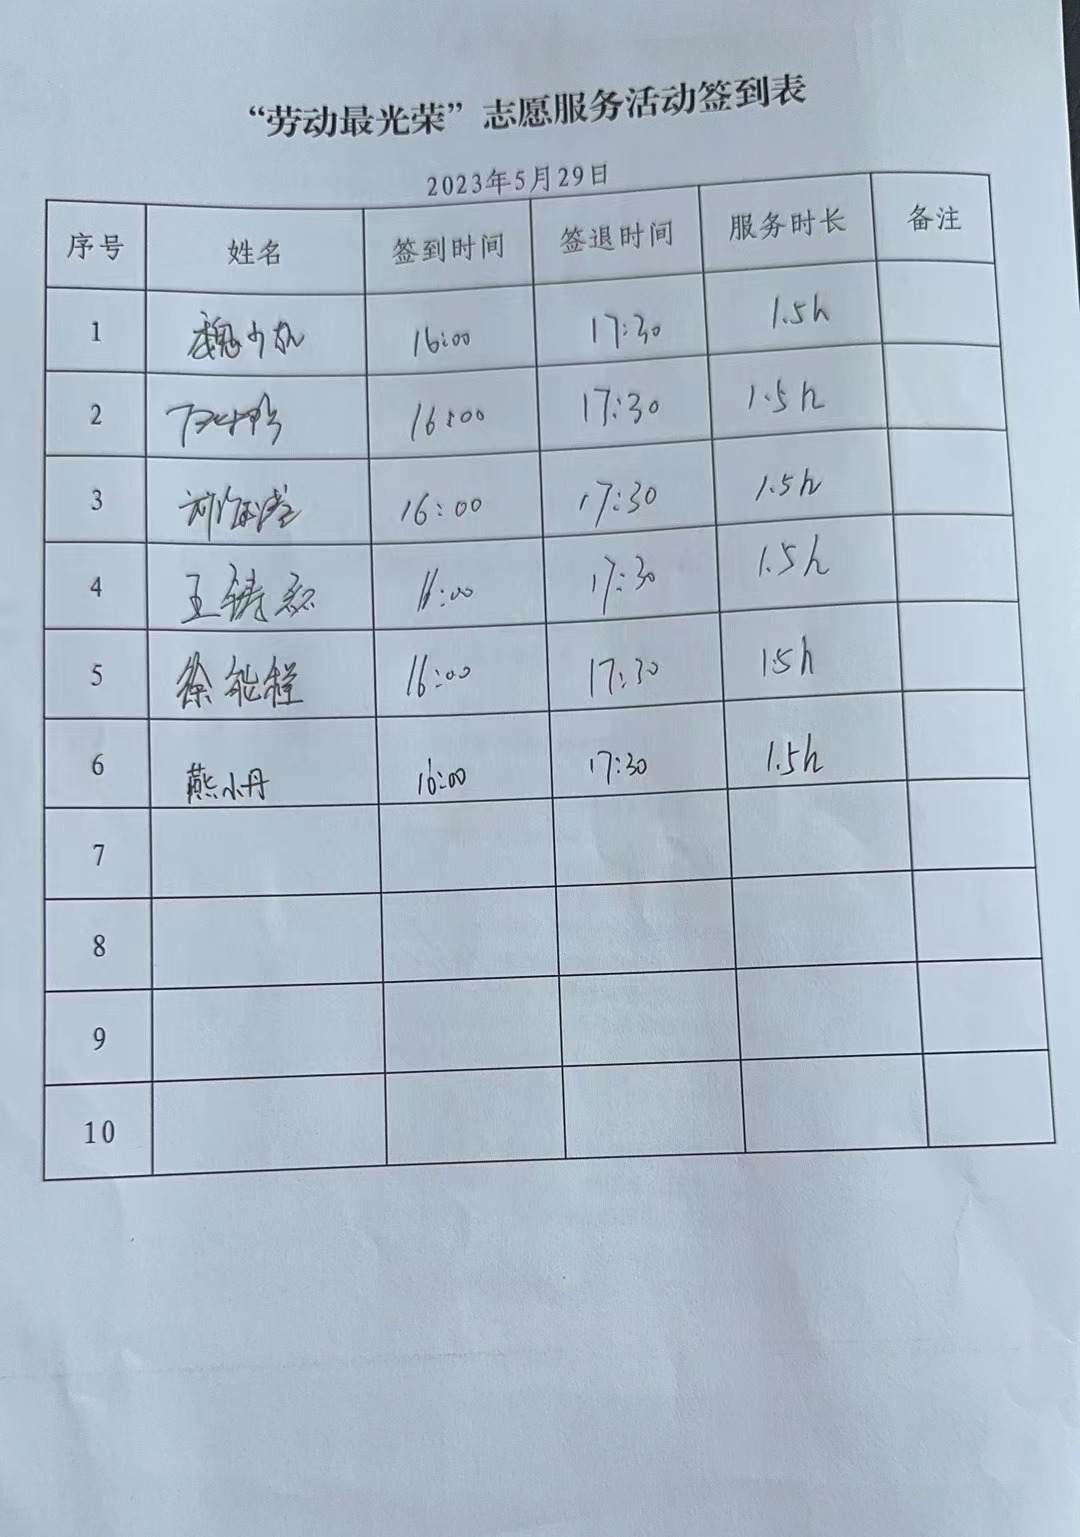 “劳动最光荣”志愿服务活动签到表
2023年5月29日
序号 姓名 签到时间 签退时间 服务时长 备注
1 魏少 16:00 17:30 1.5h
2 16:00 17:30 1.5h
3 16:00 17:30 1.5h
4 王 16:00 17:30 1.5h
5 徐能程 16:00 17:30 1.5h
6 燕小丹 16:00 17:30 1.5h
7
8
9
10